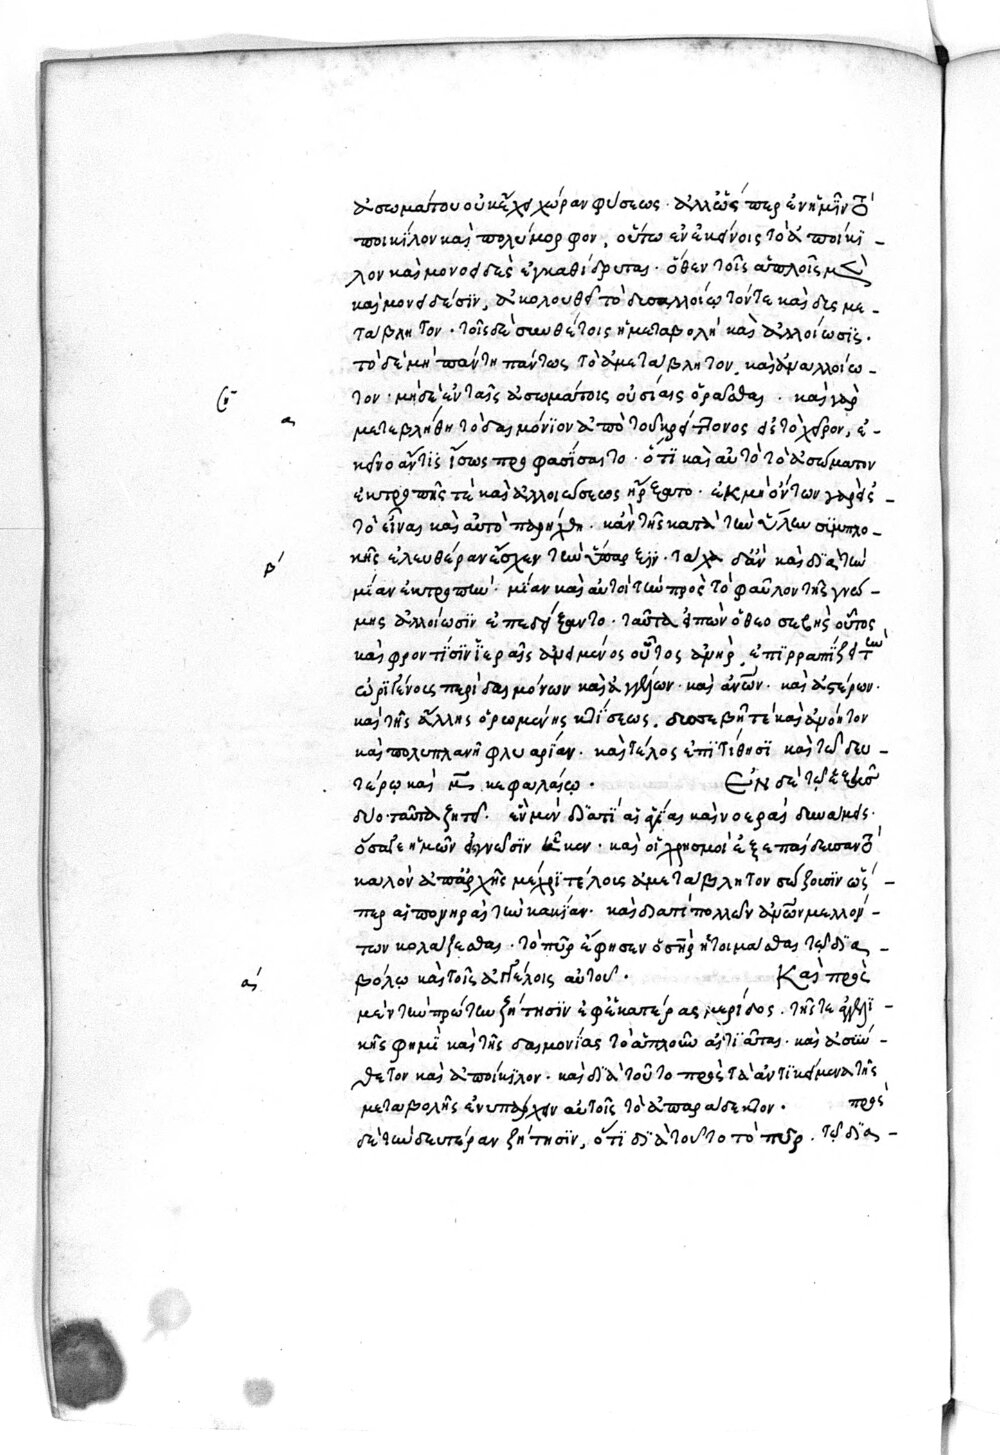 ἀσωμάτου οὐκ ἔχει χώραν φύσεως. ἀλλ' ὥσπερ ἐν ἡμῖν τὸ
ποικίλον καὶ πολύμορφον, οὕτω ἐν ἐκείνοις τὸ ἀποίκι -
λον καὶ μονοειδὲς ἐγκαθίδρυται. ὅθεν τοῖς ἁπλοῖς μὲν
καὶ μονοειδέσϊν, ἀκολουθεῖ τὸ
ταβλητον. τοῖς δὲ συνθέτοις ἡ μεταβολὴ καὶ ἀλλοίωσϊς.
τὸ δὲ μὴ πάντη πάντως τὸ ἀμετάβλητον, καὶ ἀναλλοίω -
τον. μηδὲ ἐν ταῖς ἀσωμάτοις οὐσίαις ὁρᾶσθαι. καὶ γὰρ
μετεβλήθη τὸ δαιμόνϊον ἀπὸ τοῦ κρείττονος εἰς τὸ χεῖρον, ἐ -
κεῖνο ἄν τϊς ἴσως προφασίσαιτο. ὅτϊ καὶ αὐτὸ τὸ ἀσώματον
ἐκ τροπῆς τὲ καὶ ἀλλοιώσεως ἤρξατο. ἐκ μὴ ὄντων γὰρ εἰς -
τὸ εἶναι καὶ αὐτὸ παρήχθη. κἂν τῆς κατὰ τὴν ὕλην συμπλο -
κῆς ἐλευθέραν ἔσχεν τὴν ὕπαρξϊν. τάχα δ' ἂν καὶ δϊὰ τὴν
μίαν ἐκτροπὴν. μϊαν καὶ αὐτοὶ τὴν πρὸς τὸ φαῦλον τῆς γνώ -
μης ἀλλοίωσϊν ἐπεδείξαντο. ταῦτα εἰπὼν ὁ θεοσεβὴς οὗτος
καὶ φροντίσϊν ἱεραῖς ἀνειμένος οὗτος ἀνὴρ, ἐπιρραπίζει τὴν
ὠρϊγένους περὶ δαιμόνων καὶ ἀγγέλων. καὶ ἀνων. καὶ ἀστέρων.
καὶ τῆς ἄλλης ὁρωμένης κτίσεως, δυσσεβῆ τὲ καὶ ἀνόητον
καὶ πολυπλανῆ φλυαρίαν. καὶ τέλος ἐπιτίθησϊ καὶ τῶ δευ -
τέρω καὶ κεφαλαίω. Ἐν δὲ τῶ ἑξῆς
δύο ταῦτα ζητεῖ. ἓν μὲν δϊατί αἱ ἅγίαι καὶ νοεραὶ δυνάμεις.
ὅσα γε ἡμῶν ἡ γνῶσϊν ἧκεν. καὶ οἱ χρησμοὶ ἐξεπαίδευσαν τὸ
καλὸν ἀπ' ἀρχῆς μέχρϊ τέλους ἀμετάβλητον σώζουσϊν ὥσ -
περ αἱ πονηραὶ τὴν κακίαν. καὶ δϊατί πολλῶν ἀνων μελλόν -
των κολάζεσθαι. τὸ πῦρ ἔφησεν ὁ σηρ ἡτοιμάσθαι τῶ δϊα -
βόλω καὶ τοῖς ἀγγέλοις αὐτοῦ. Καὶ πρὸς
μὲν τὴν πρώτην ζήτησϊν ἐφ' ἑκατέρας μερίδος. τῆς τε ἀγγελϊ -
κῆς φημὶ καὶ τῆς δαιμονίας τὸ ἁπλοῦν αἰτϊᾶται. καὶ ἀσύν -
θετον καὶ ἀποίκϊλον. καὶ δϊὰ τοῦτο πρὸς τὰ ἀντϊκείμενα τῆς
μεταβολῆς ἐνυπάρχειν αὐτοῖς τὸ ἀπαράδεκτον. πρὸς
δὲ τὴν δευτέραν ζήτησϊν, ὅτϊ δϊὰ τοῦτο τὸ πῦρ. τῶ δϊα -
α
β'
α'